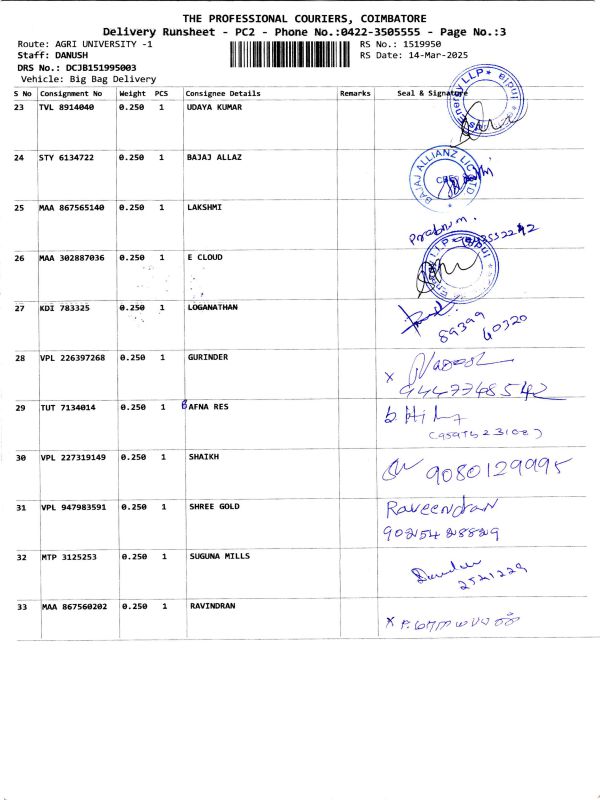 THE PROFESSIONAL COURIERS, COIMBATORE
Delivery Runsheet - PC2 - Phone No.:0422-3505555 - Page No.:3
Route: AGRI UNIVERSITY -1 RS No.: 1519950
Staff: DANUSH RS Date: 14-Mar-2025
DRS No.: DCJB151995003
Vehicle: Big Bag Delivery
S No Consignment No Weight PCS Consignee Details Remarks Seal & Signature
23 TVL 8914040 0.250 1 UDAYA KUMAR
Energy LLP * india
24 STY 6134722 0.250 1 BAJAJ ALLAZ
BAJAJ ALLIANZ LIC LTD
25 MAA 867565140 0.250 1 LAKSHMI
Prabu m.
26 MAA 302887036 0.250 1 E CLOUD
Energy LLP
27 KDI 783325 0.250 1 LOGANATHAN
89399 60320
28 VPL 226397268 0.250 1 GURINDER
9447748542
29 TUT 7134014 0.250 1 BAFNA RES
30 VPL 227319149 0.250 1 SHAIKH
9080129995
31 VPL 947983591 0.250 1 SHREE GOLD
Raveendran
90254 28829
32 MTP 3125253 0.250 1 SUGUNA MILLS
2521229
33 MAA 867560202 0.250 1 RAVINDRAN